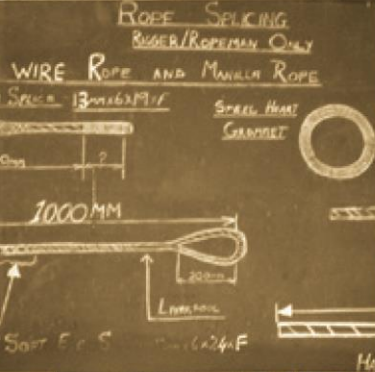 ROPE SPLICING
RIGGER/ROPEMAN ONLY
WIRE ROPE AND MANILLA ROPE
SPLICE 13mm×6×19×F
STEEL HEART
GROMMET
?
1000 MM
200mm
LIVERPOOL
SOFT E S ×6×24×F